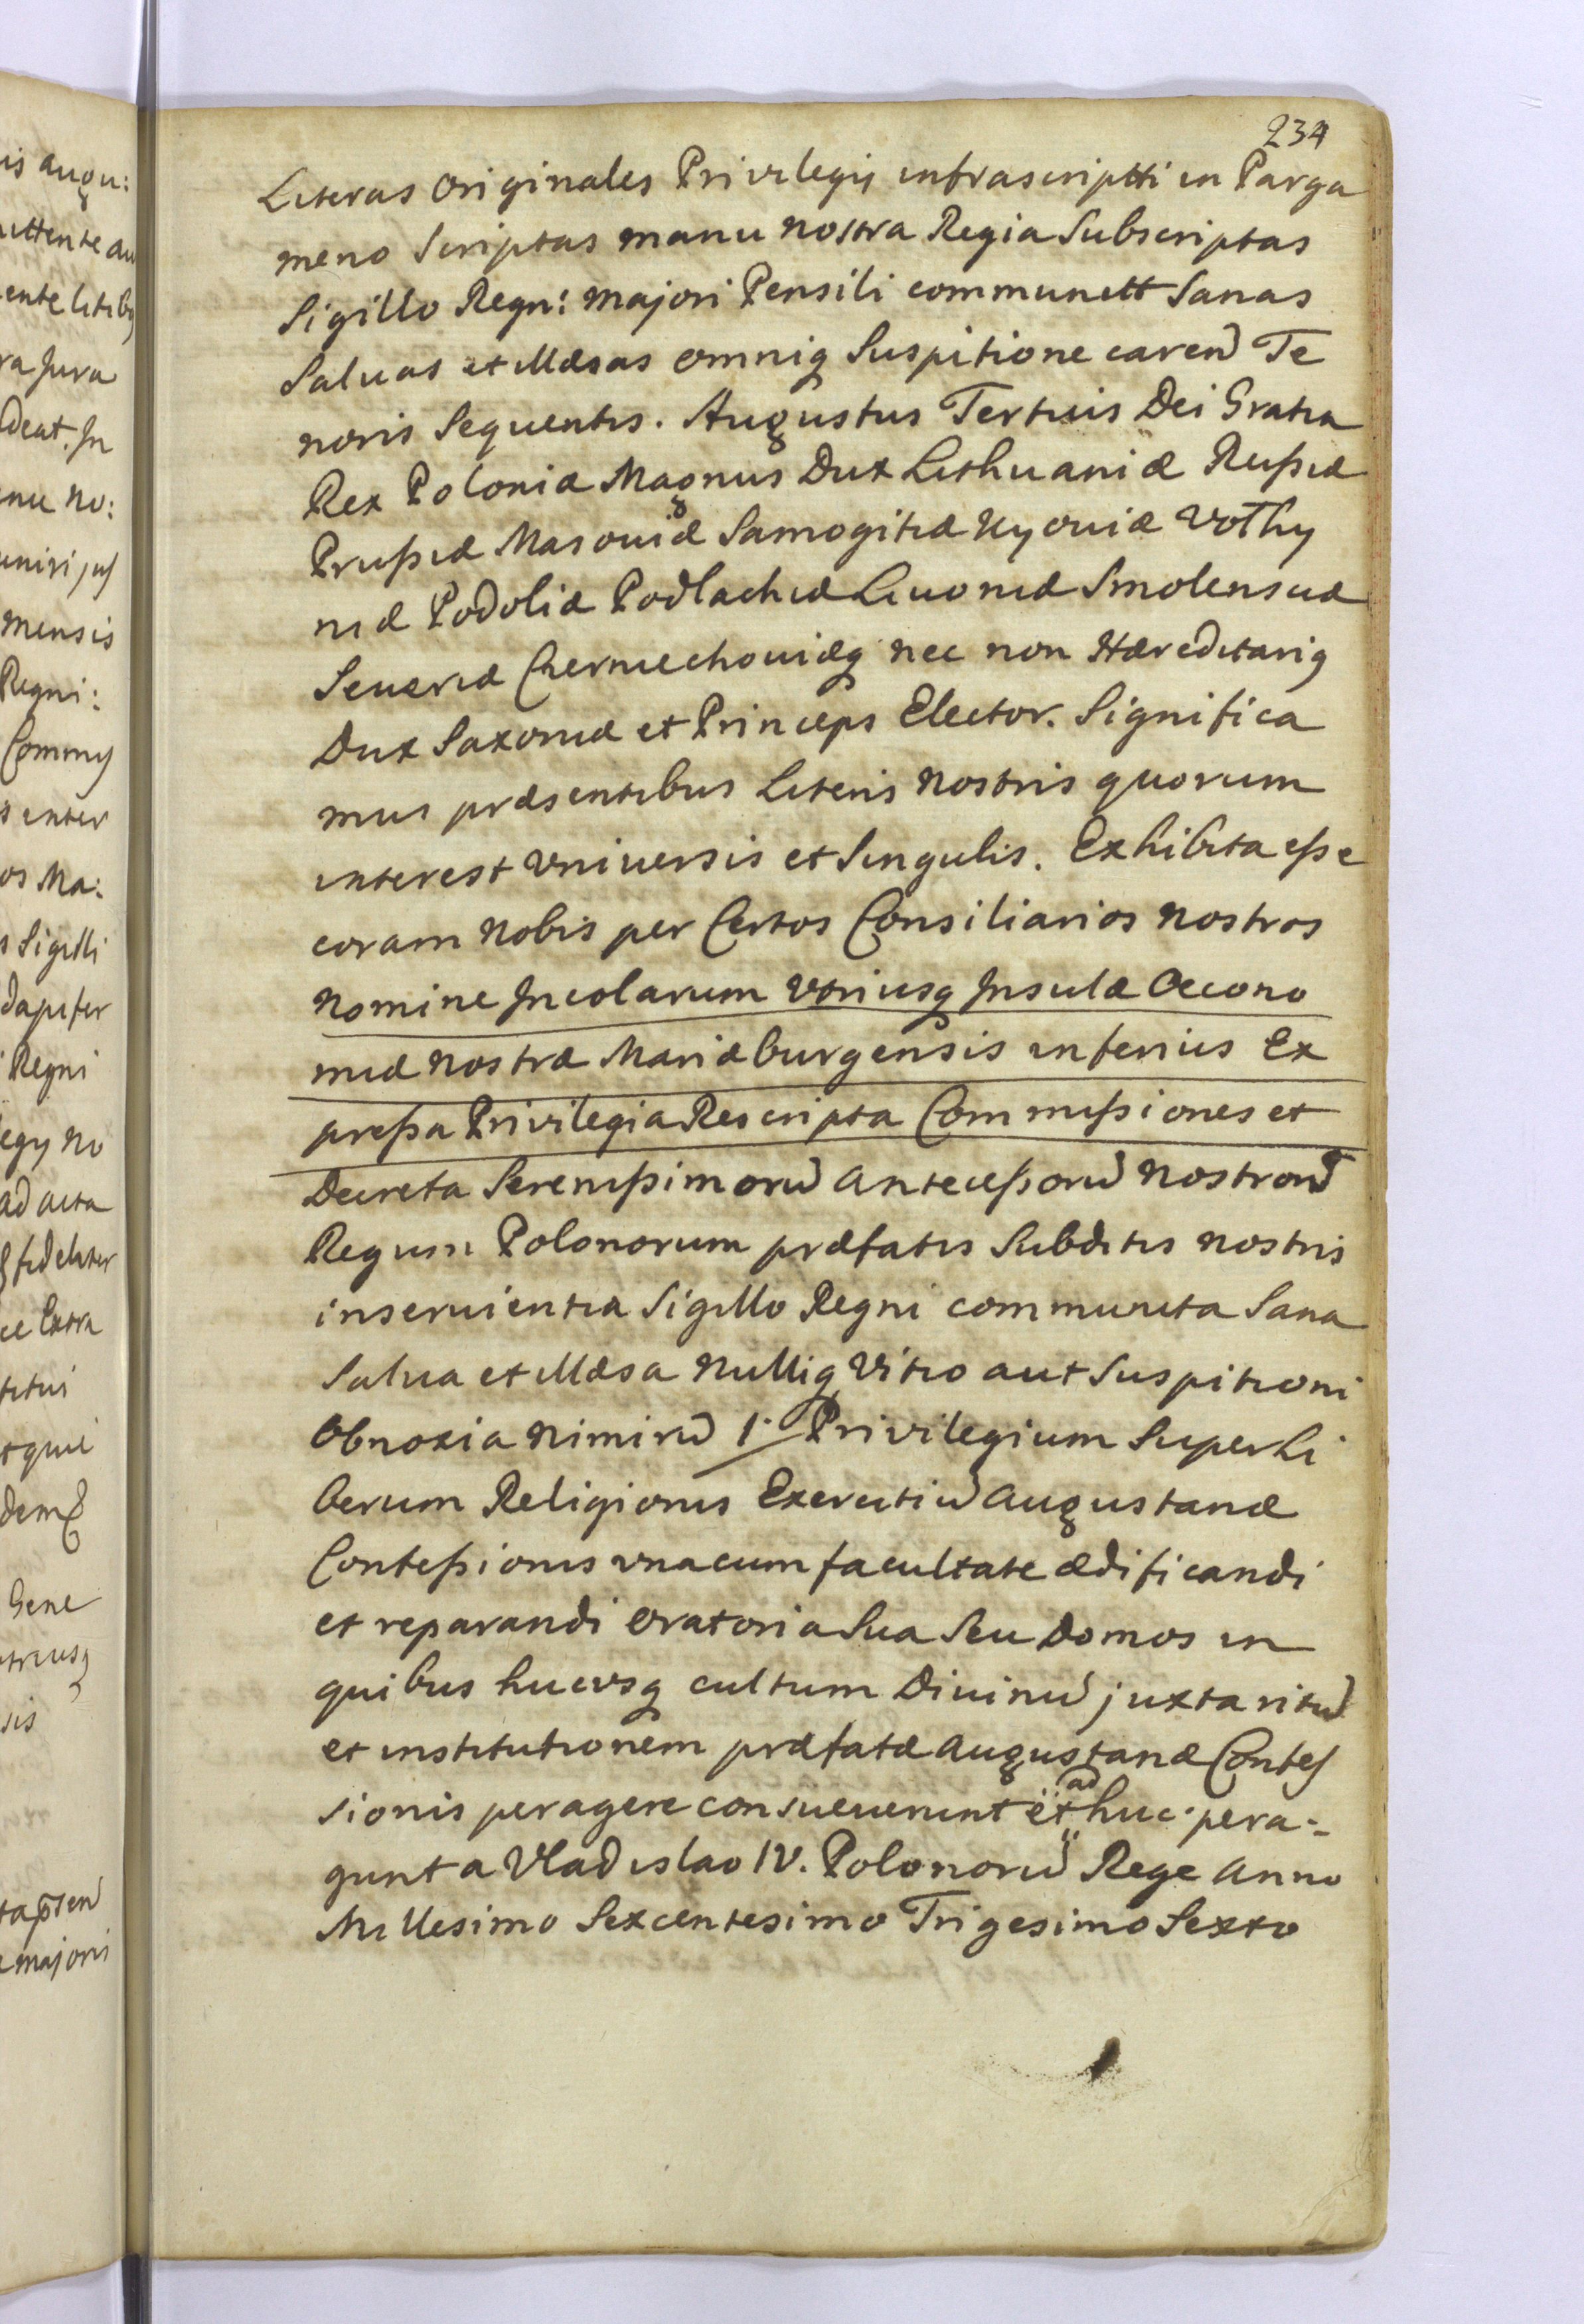 234
Literas Originales Privilegij infrascriptti in Parga
meno Scriptas manu nostra Regia Subscriptas
Sigillo Regn: majori Pensili communitt Sanas
Salvas et Illæsas omniq Suspitione caren Te
noris Sequentis. Augustus Tertius Dei Gratia
Rex Poloniæ Magnus Dux Lithuaniæ Rußiæ
Prußiæ Masouiæ Samogitiæ Kyouiæ Volhy
niæ Podoliæ Podlachiæ Liuoniæ Smolensciæ
Seueriæ Czerniechouiæq nec non Hæreditariq
Dux Saxoniæ et Princeps Elector. Significa
mus præsentibus Literis Nostris quorum
interest Vniuersis et Singulis. Exhibita eße
coram Nobis per Certos Consiliarios Nostros
Nomine Incolarum Vtriusq Insulæ Oecono
miæ Nostræ Mariæburgensis inferius Ex
preßa Privilegia Rescripta Commißiones et
Decreta Serenißimorũ Anteceßorũ Nostrorũ
Regum Polonorum præfatis Subditis Nostris
inseruientia Sigillo Regni communita Sana
Salua et Illæsa Nulliq Vitio aut Suspitioni
Obnoxia Nimirũ 1. Privilegium Super Li
berum Religionis Exercitiũ Augustanæ
Confeßionis vna cum facultate ædificandi
et reparandi Oratoria Sua Seu Domos in
quibus hucusq cultum Diuinũ juxta ritũ
et institutionem præfatæ Augustanæ Confes
sionis peragere consueuerunt et ad huc pera-
gunt a Vladislao IV. Polonorũ Rege Anno
Millesimo Sexcentesimo Trigesimo Sexto
is augu:
ente litibq
ra Jura
deat. In
mensis
Regni:
s inter
os Ma:
s Sigilli
dapifer
Regni
ad acta
fideliter
ce Extra
Gene
sis
majori